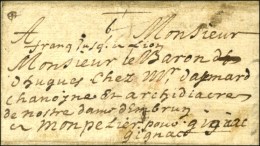 A Monsieur
franq jusq a Lion
Monsieur le Baron
dhugues Chez Mr. dapnard
chanoine Et archidiacre
de nostre dame dembrun
a monpelier pour gignac
gignac